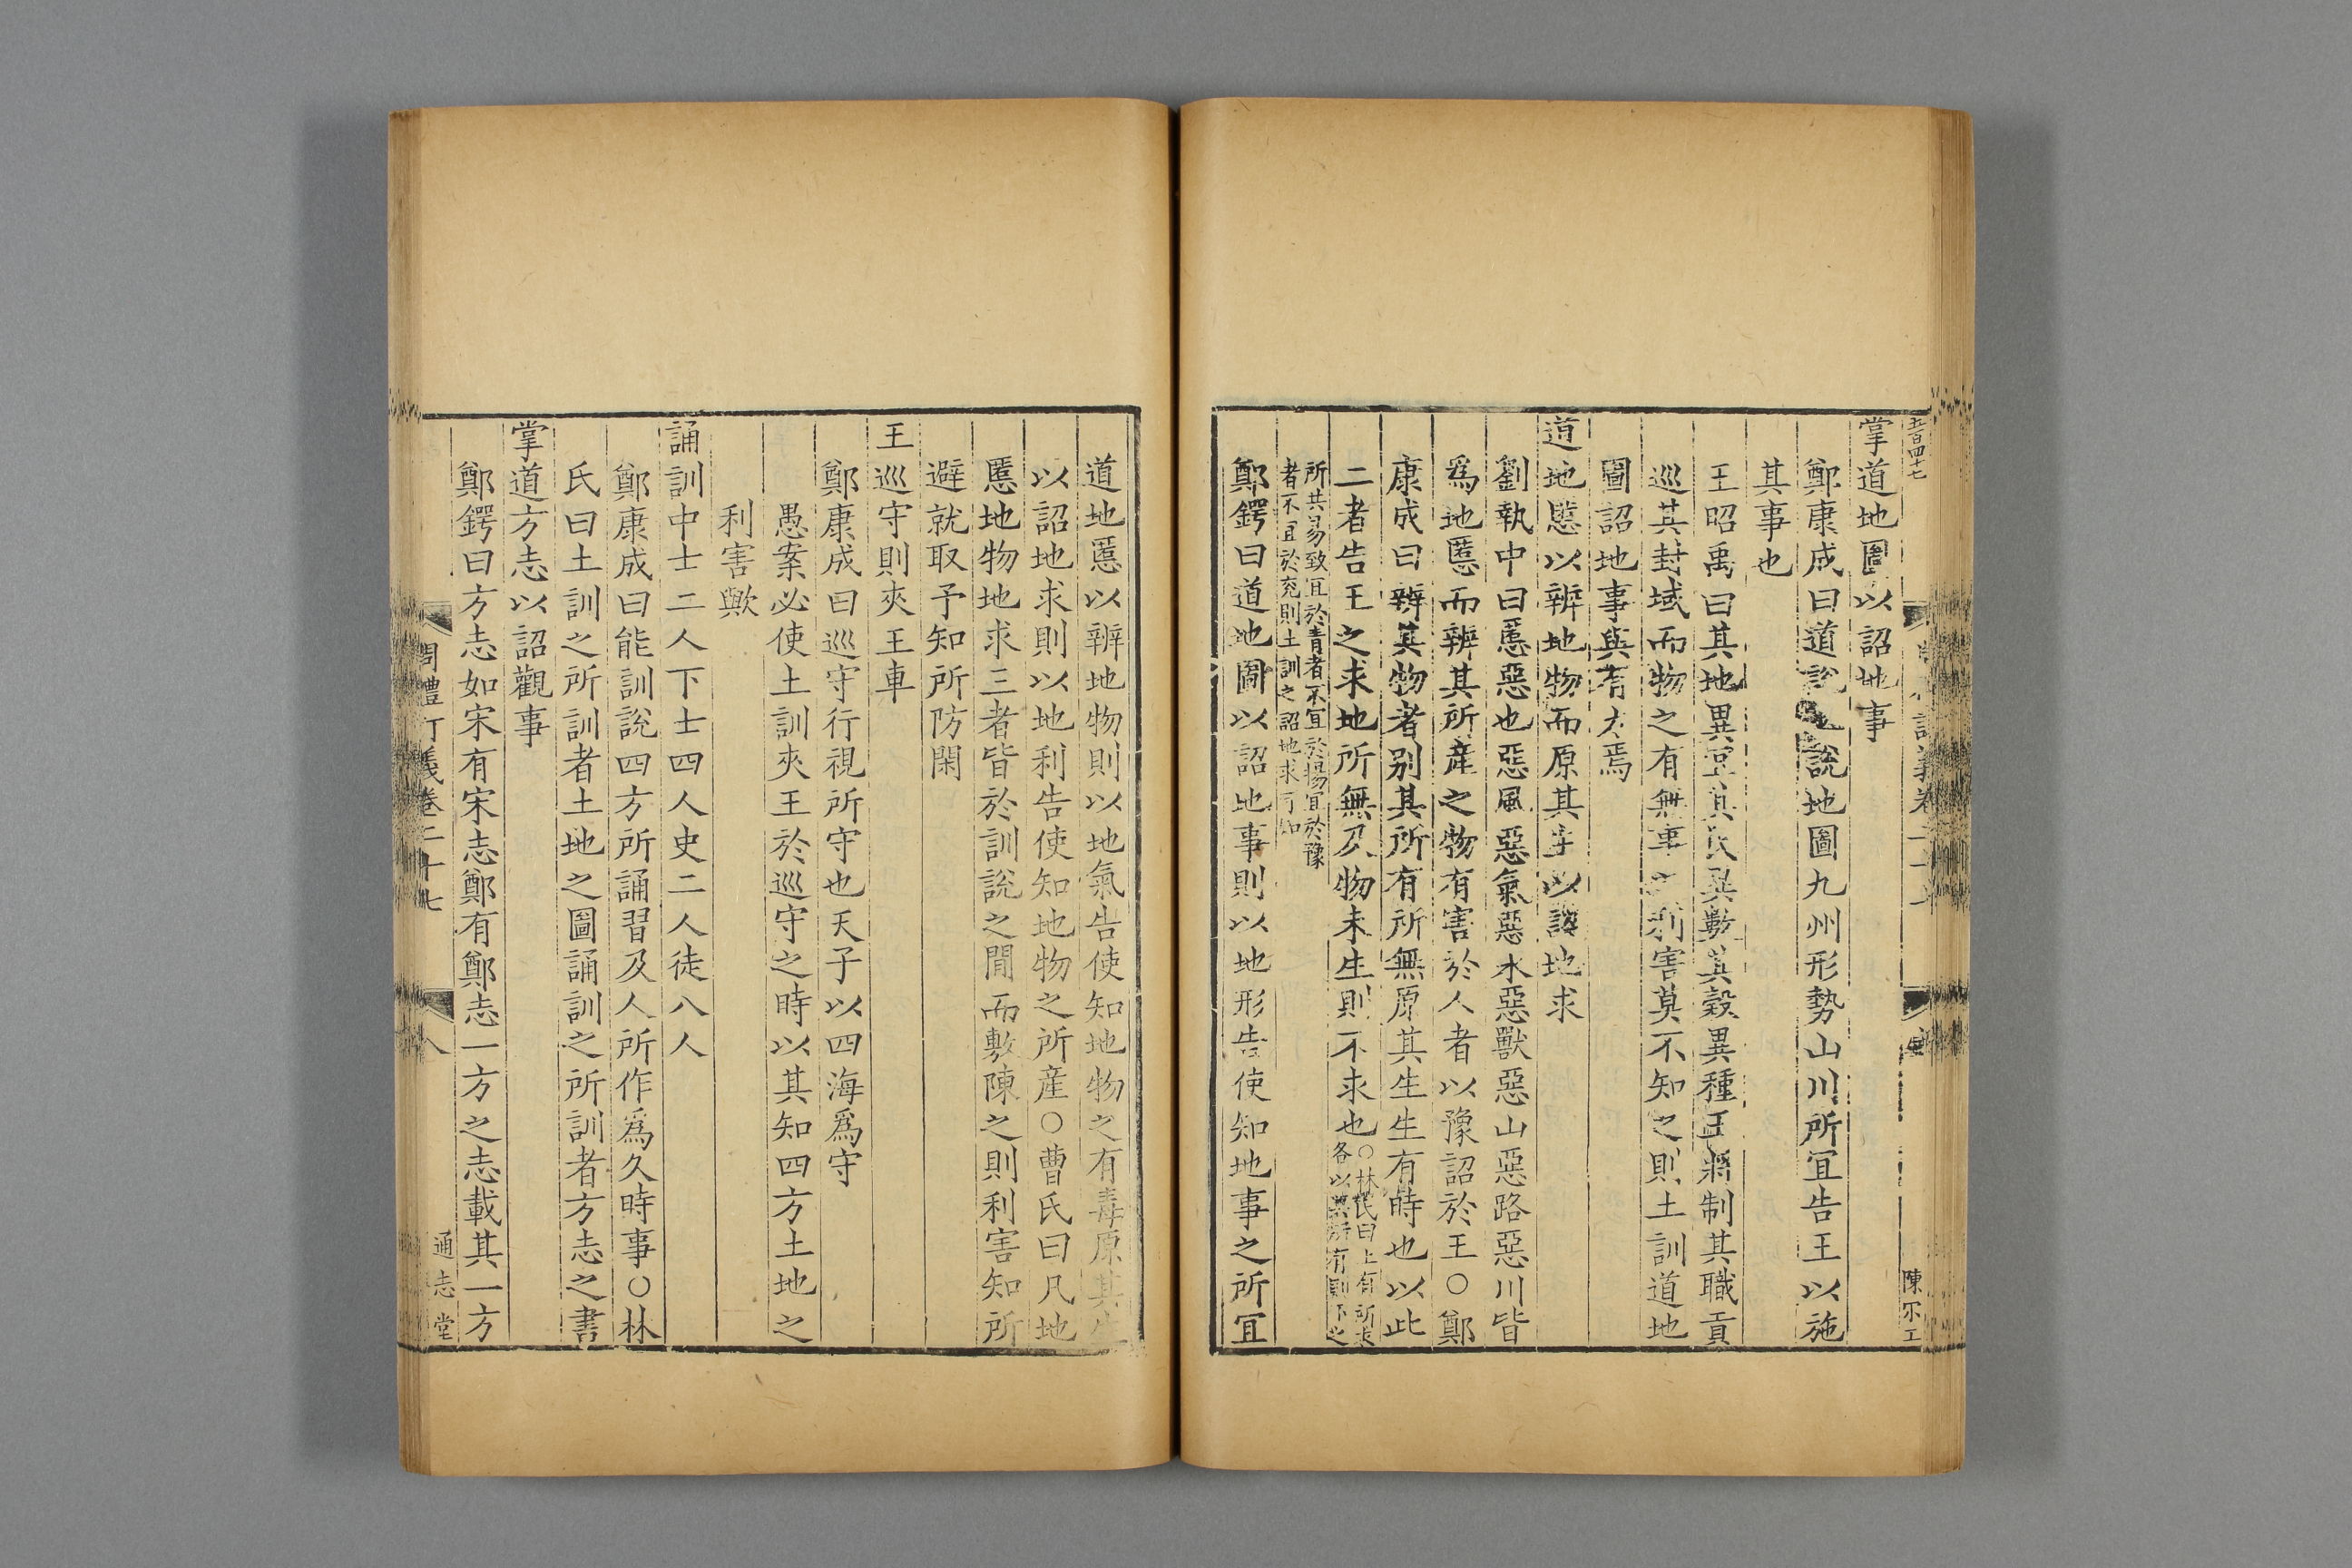 五百四十七
掌道地圖以詔地事
鄭康成曰道說也說地圖九州形勢山川所宜告王以施
其事也
王昭禹曰其地異宜其民異數其穀異種王將制其職貢
巡其封域而物之有無事之利害莫不知之則土訓道地
圖詔地事與有力焉
道地慝以辨地物而原其生以詔地求
劉執中曰慝惡也惡風惡氣惡水惡獸惡山惡路惡川皆
爲地慝而辨其所産之物有害於人者以豫詔於王○鄭
康成曰辨其物者別其所有所無原其生生有時也以此
二者告王之求地所無及物未生則不求也○林氏曰上有所求
各以其所有則下之
所共易致宜於青者不宜於揚宜於豫
者不宜於兖則土訓之詔地求可知
鄭鍔曰道地圖以詔地事則以地形告使知地事之所宜
陳爾工
道地慝以辨地物則以地氣告使知地物之有毒原其生
以詔地求則以地利告使知地物之所産○曹氏曰凡地
慝地物地求三者皆於訓說之閒而敷陳之則利害知所
避就取予知所防閑
王巡守則夾王車
鄭康成曰巡守行視所守也天子以四海爲守
愚案必使土訓夾王於巡守之時以其知四方土地之
利害歟
誦訓中士二人下士四人史二人徒八人
鄭康成曰能訓說四方所誦習及人所作爲久時事○林
氏曰土訓之所訓者土地之圖誦訓之所訓者方志之書
掌道方志以詔觀事
鄭鍔曰方志如宋有宋志鄭有鄭志一方之志載其一方
周禮訂義卷二十七
八
通志堂